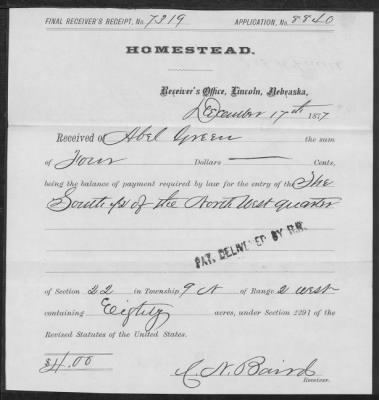 FINAL RECEIVER'S RECEIPT, No. 7319 APPLICATION, No. 8840
HOMESTEAD.
Receiver's Office, Lincoln, Nebraska,
December 17th 1877
Received of Abel Green the sum
of Four Dollars — Cents,
being the balance of payment required by law for the entry of the The
South 1/2 of the North West quarter
PAT. DELIVERED BY R.R.
of Section 22 in Township 9 N of Range 2 West
containing Eighty acres, under Section 2291 of the
Revised Statutes of the United States.
$4.00
C. N. Baird
Receiver.